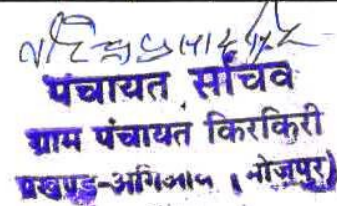 पंचायत सचिव
ग्राम पंचायत किरकिरी
प्रखण्ड-अगिआंव (भोजपुर)